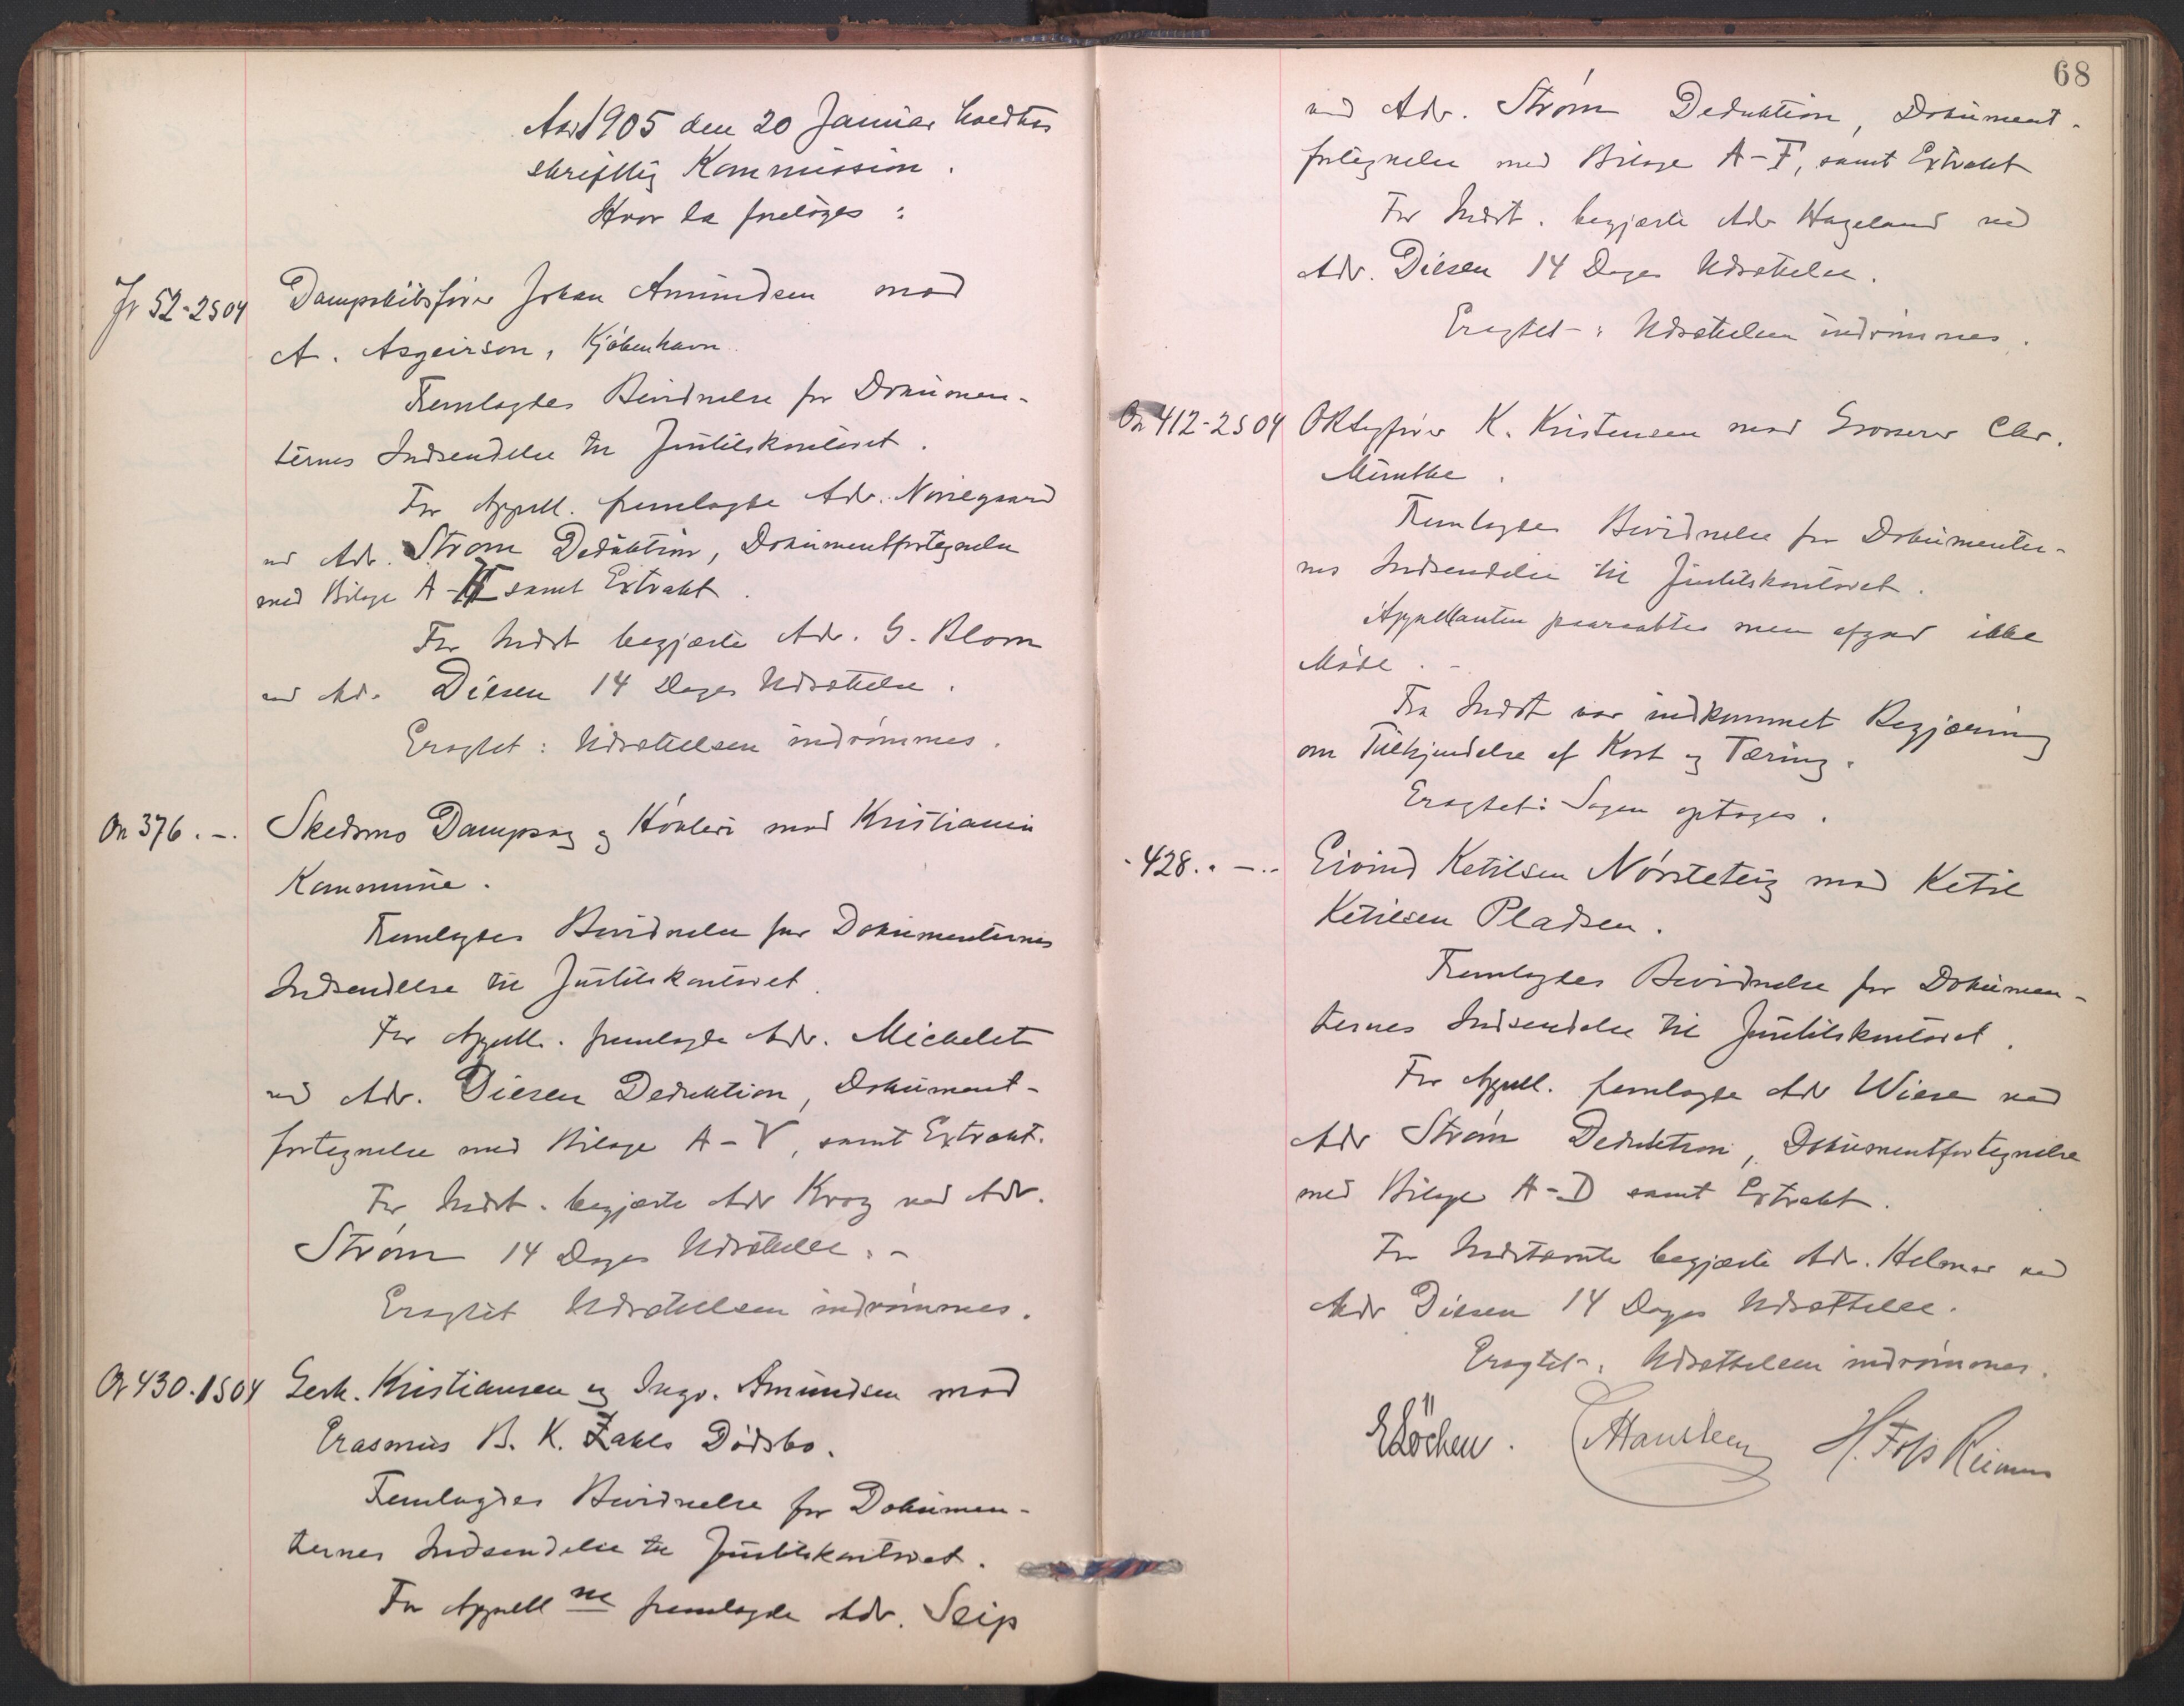 Aar 1905 den 20 Januar holdtes
skriftlig Kommission.
Hvor da foretoges:
Fr 52-2S04 Dampskibsfører Johan Amundsen mod
A. Asgeirson, Kjøbenhavn.
Fremlagdes Bevidnelse for Dokumen-
ternes Indsendelse til Justitskontoret.
For Appell. fremlagde Adv. Nørregaard
ved Adv. Strøm Deduktion, Dokumentfortegnelse
med Bilage A- samt Extrakt.
For Indst begjærte Adv. G. Blom
ved Adv. Diesen 14 Dages Udsættelse.
Eragtet: Udsættelsen indrømmes.
On 376. -. Skedsmo Dampsag og Høvleri mod Kristiania
Kommune.
Fremlagdes Bevidnelse for Dokumenternes
Indsendelse til Justitskontoret.
For Appell. fremlagde Adv. Michelet
ved Adv. Diesen Deduktion, Dokument-
fortegnelse med Bilage A-V, samt Extrakt.
For Indst. begjærte Adv Krag ved Adv.
Strøm 14 Dages Udsættelse. -
Eragtet Udsættelsen indrømmes.
On 430.1S04 Gerh. Kristiansen og Ingv. Amundsen mod
Erasmus B. K. Zahls Dødsbo.
Fremlagdes Bevidnelse for Dokumen-
ternes Indsendelse til Justitskontoret.
For Appell ne fremlagde Adv. Seip
68
ved Adv. Strøm Deduktion, Dokument-
fortegnelse med Bilage A-F, samt Extrakt
For Indst. begjærte Adv Hageland ved
Adv. Diesen 14 Dages Udsættelse.
Eragtet-: Udsættelsen indrømmes.
On 412-2S04 O K. Kristensen mod Grosserer Chr.
Munthe.
Fremlagdes Bevidnelse for Dokumenter-
nes Indsendelse til Justitskontoret.
Appellanten paaraabtes men afgav ikke
Møde. -
Fra Indst var indkommet Begjæring
om Tilkjendelse af Kost og Tæring.
Eragtet: Sagen optages.
- 428. . -.- Eivind Ketilsen Nørsteteig mod Ketil
Ketilsen Pladsen.
Fremlagdes Bevidnelse for Dokumen-
ternes Indsendelse til Justitskontoret.
For Appell. fremlagde Adv Wiese ved
Adv Strøm Deduktion, Dokumentfortegnelse
med Bilage A-D samt Extrakt.
For Indstævnte begjærte Adv. Helmer ved
Adv Diesen 14 Dages Udsættelse.
Eragtet-: Udsættelsen indrømmes.
E Löchen. Hansteen H. Foss Reimers